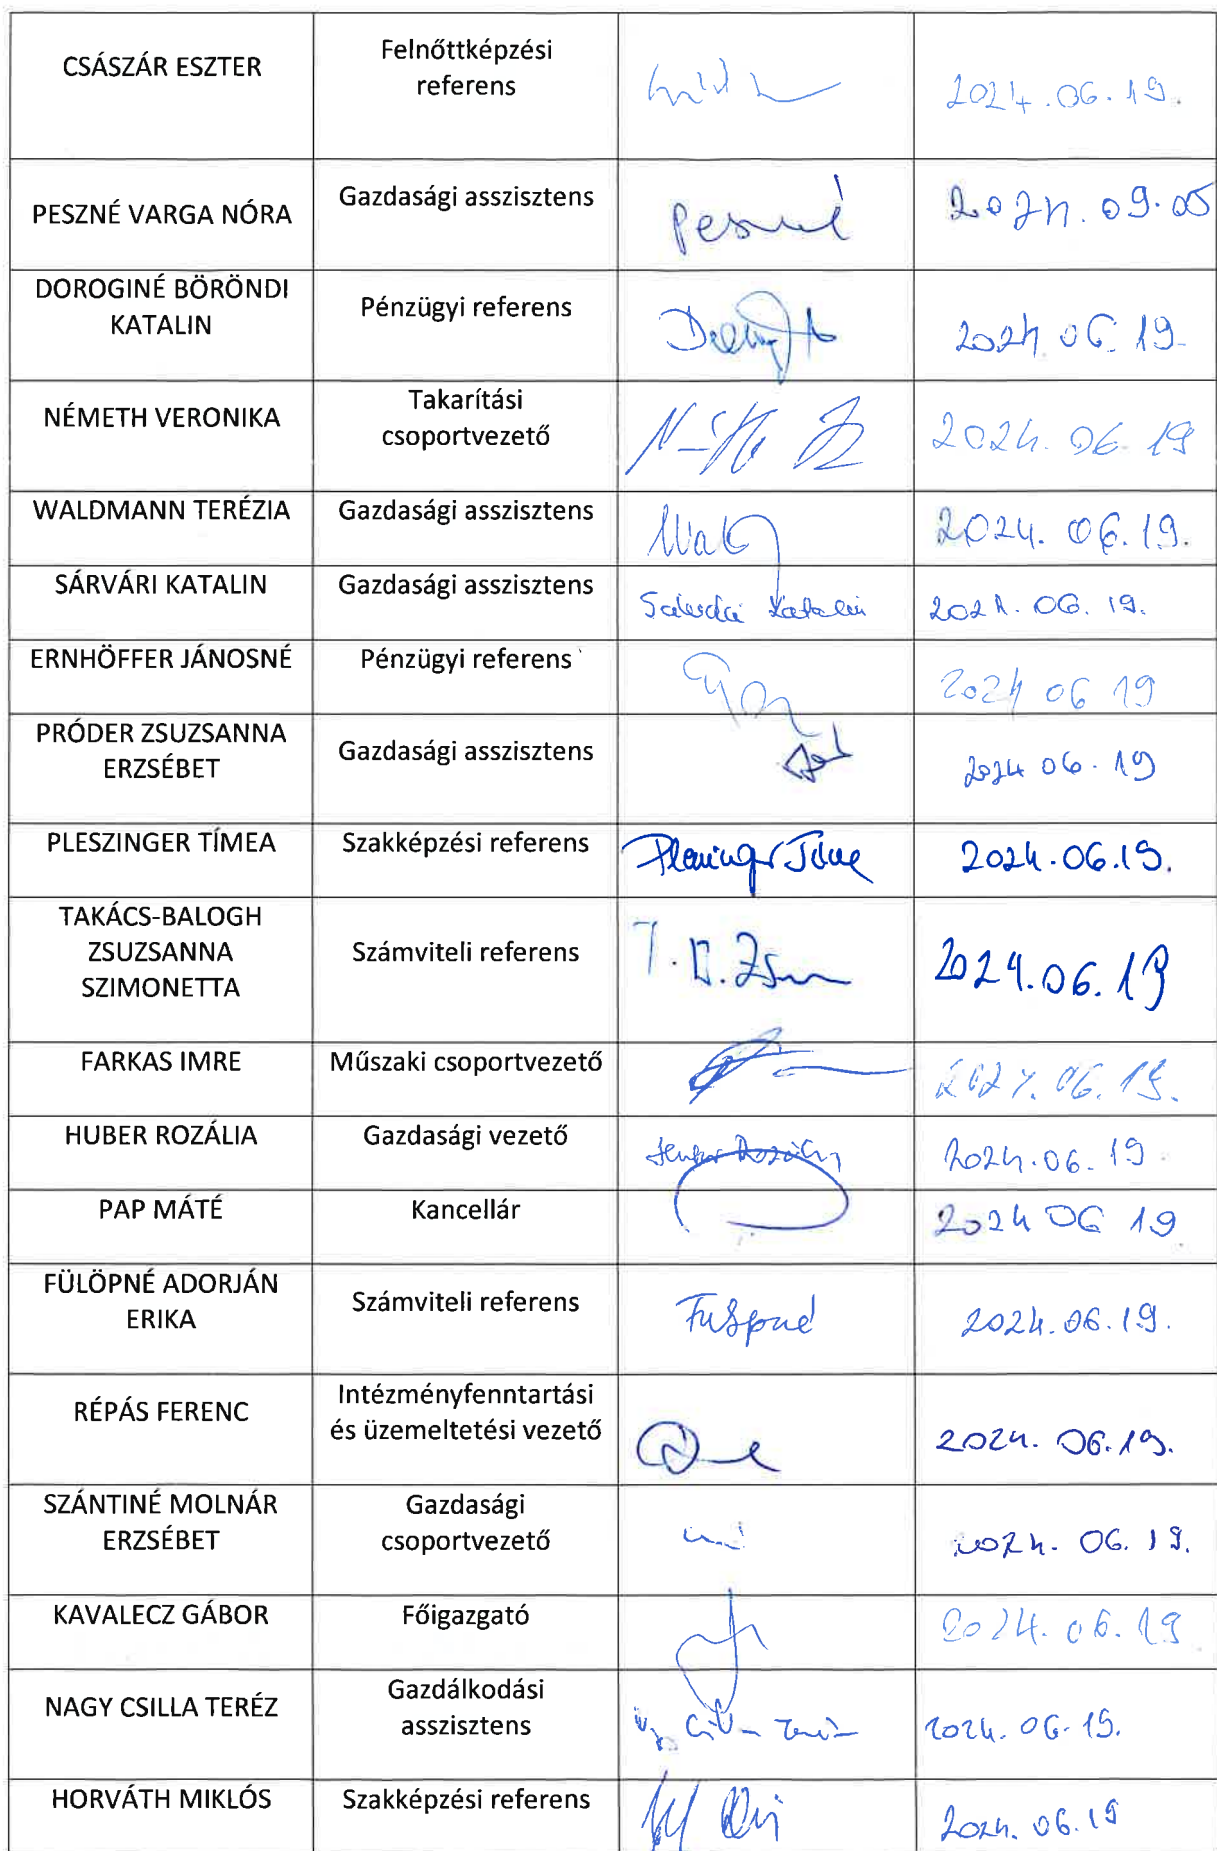 CSÁSZÁR ESZTER
Felnőttképzési
referens
2024.06.19.
PESZNÉ VARGA NÓRA
Gazdasági asszisztens
Peszné
2024.09.05
DOROGINÉ BÖRÖNDI
KATALIN
Pénzügyi referens
2024.06.19.
NÉMETH VERONIKA
Takarítási
csoportvezető
2024.06.19
WALDMANN TERÉZIA
Gazdasági asszisztens
2024.06.19.
SÁRVÁRI KATALIN
Gazdasági asszisztens
Sárvári Katalin
2024.06.19.
ERNHÖFFER JÁNOSNÉ
Pénzügyi referens
2024 06 19
PRÓDER ZSUZSANNA
ERZSÉBET
Gazdasági asszisztens
2024 06.19
PLESZINGER TÍMEA
Szakképzési referens
Pleszinger Tímea
2024.06.19.
TAKÁCS-BALOGH
ZSUZSANNA
SZIMONETTA
Számviteli referens
T.B.Zsu
2024.06.19
FARKAS IMRE
Műszaki csoportvezető
2024.06.19.
HUBER ROZÁLIA
Gazdasági vezető
Huber Rozália
2024.06.19.
PAP MÁTÉ
Kancellár
2024 06 19
FÜLÖPNÉ ADORJÁN
ERIKA
Számviteli referens
Fülöpné
2024.06.19.
RÉPÁS FERENC
Intézményfenntartási
és üzemeltetési vezető
2024.06.19.
SZÁNTINÉ MOLNÁR
ERZSÉBET
Gazdasági
csoportvezető
2024.06.19.
KAVALECZ GÁBOR
Főigazgató
2024.06.19
NAGY CSILLA TERÉZ
Gazdálkodási
asszisztens
2024.06.19.
HORVÁTH MIKLÓS
Szakképzési referens
2024.06.19